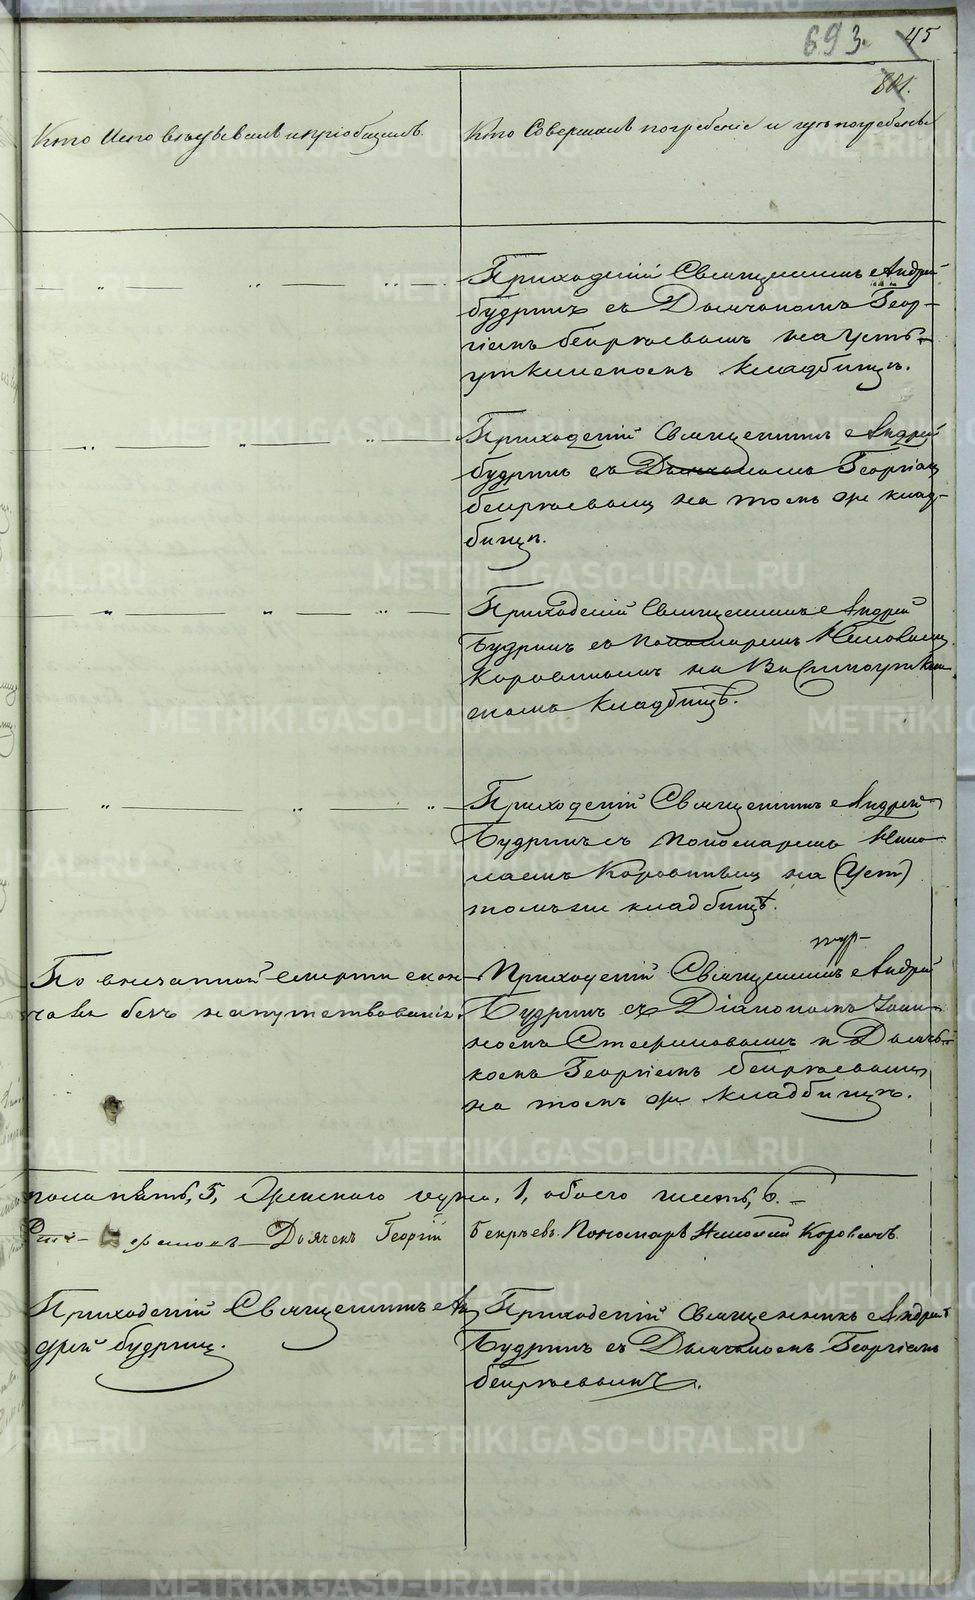 693. 45
801.
Кто исповѣдывалъ и пріобщалъ.
Кто совершалъ погребеніе и гдѣ погребены
Приходскій Священникъ Андрей
Будринъ съ Дьячкомъ Геор-
гіемъ Бекрѣевымъ на Усть-
уткинскомъ кладбищѣ.
Приходскій Священникъ Андрей
Будринъ съ Дьячкомъ Георгіемъ
Бекрѣевымъ на томъ же клад-
бищѣ.
Приходскій Священникъ Андрей
Будринъ съ пономаремъ Николаемъ
Коровинымъ на
скомъ кладбищѣ.
Приходскій Священникъ Андрей
Будринъ съ пономаремъ Нико-
лаемъ Коровинымъ на (Уст)
томъ же кладбищѣ.
По внезапной смерти скон-
чавш безъ напутствованія.
Приходскій Священникъ Андрей
Будринъ съ Діакономъ Іоан-
номъ и Дьяч-
комъ Георгіемъ Бекрѣевымъ
на томъ же кладбищѣ.
пола пять, 5, женскаго одна, 1, обоего шесть, 6.
Дьячекъ Георгій Бекрѣевъ. Пономарь Николай Коровинъ.
Приходскій Священникъ Ан-
дрей Будринъ.
Приходскій Священникъ Андрей
Будринъ съ Дьячкомъ Георгіемъ
Бекрѣевымъ.
METRIKI.GASO-URAL.RU